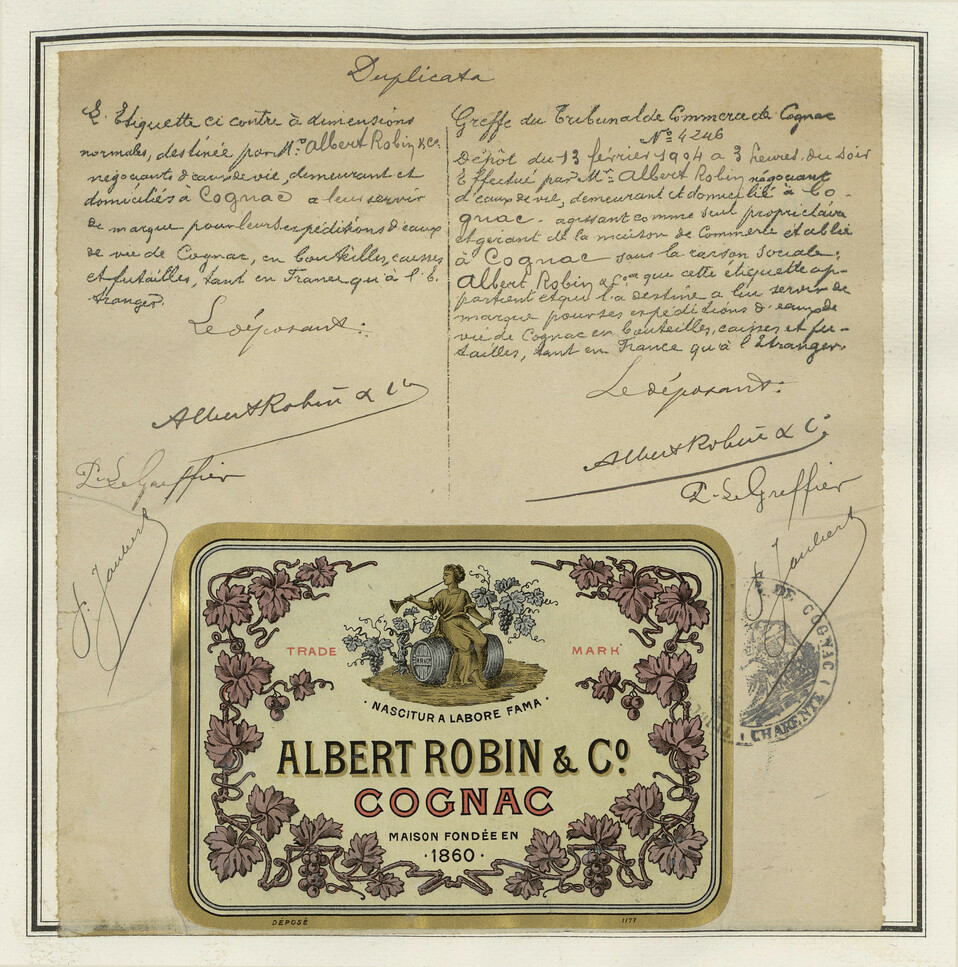 Duplicata
L'Etiquette ci contre à dimensions
normales, destinée par Mr. Albert Robin & Co.
négociants d'eaux de vie, demeurant et
domiciliés à Cognac a leur servir
de marque pour leurs expéditions d'eaux
de vie de Cognac, en bouteilles, caisses
et futailles, tant en France qu'à l'E-
tranger.
Le déposant:
Albert Robin & Co
P. Le Greffier
J. Jaubert
Greffe du Tribunal de Commerce de Cognac
No 4246
Dépôt du 13 février 1904 a 3 heures du soir
Effectué par Mr. Albert Robin négociant
d'eaux de vie, demeurant et domicilié à Co-
gnac - agissant comme seul propriétaire
et gérant de la maison de Commerce établie
à Cognac sous la raison sociale:
Albert Robin & Co que cette étiquette ap-
partient et qu'il l'a destine a lui servir de
marque pour ses expéditions d'eaux de
vie de Cognac en bouteilles, caisses et fu-
tailles, tant en France qu'à l'Etranger.
Le déposant:
Albert Robin & Co
P. Le Greffier
J. Jaubert
DE COGNAC (
CHARENTE
TRADE MARK
NASCITUR A LABORE FAMA
ALBERT ROBIN & Co.
COGNAC
MAISON FONDÉE EN
·1860·
DÉPOSÉ 1177